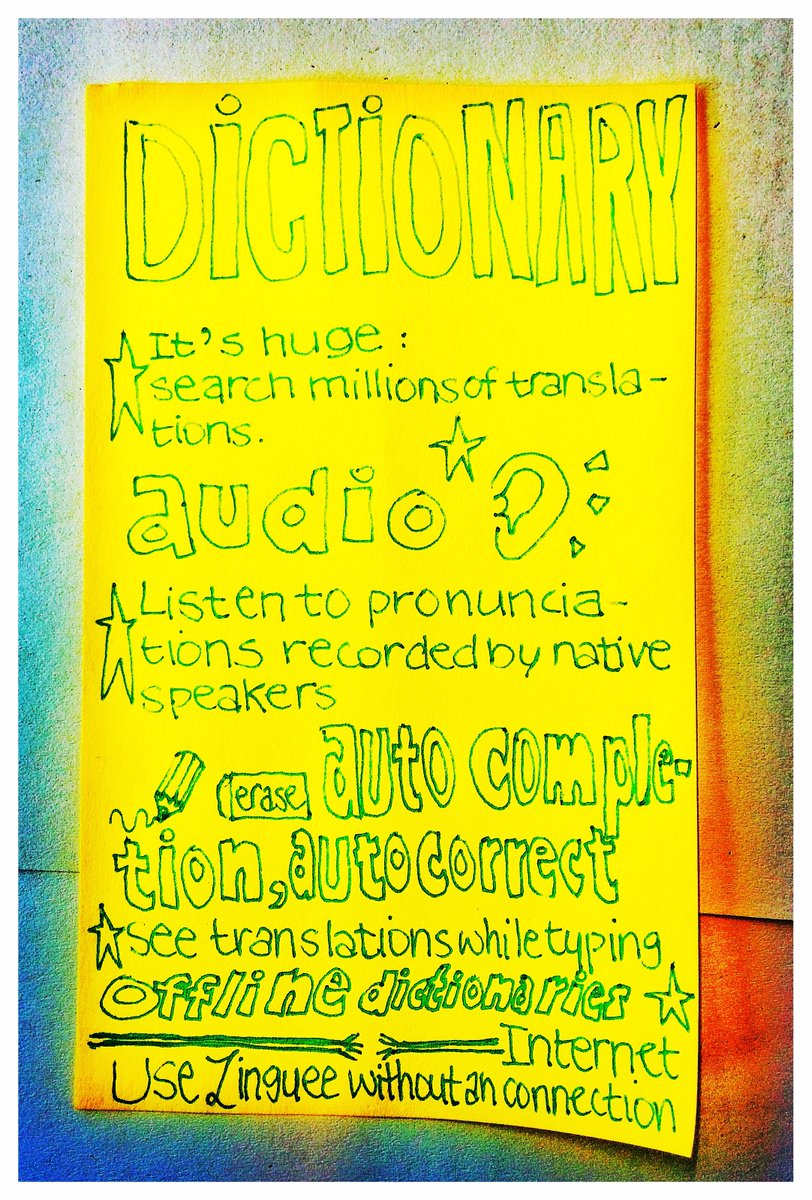 DiCTiONARY
It's huge:
search millions of transla-
tions.
audio
Listen to pronuncia-
tions recorded by native
speakers
erase auto comple-
tion, autocorrect
See translations while typing
Offline dictionaries
Internet
Use Linguee without an connection